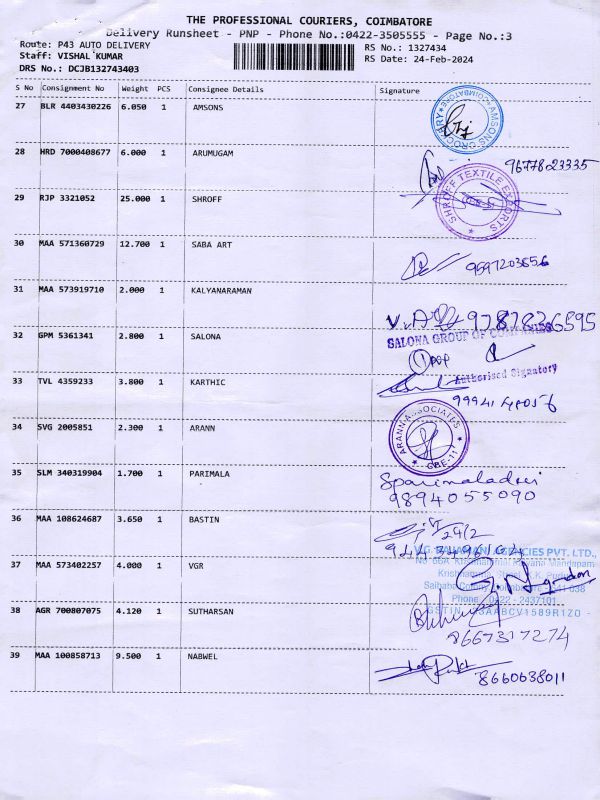 THE PROFESSIONAL COURIERS, COIMBATORE
Delivery Runsheet - PNP - Phone No.:0422-3505555 - Page No.:3
Route: P43 AUTO DELIVERY
RS No.: 1327434
Staff: VISHAL KUMAR
RS Date: 24-Feb-2024
DRS No.: DCJB132743403
S No Consignment No Weight PCS Consignee Details Signature
27 BLR 4403430226 6.050 1 AMSONS
AMSONS CROCKARY ★ COIMBATORE ★
28 HRD 7000408677 6.000 1 ARUMUGAM
9677823335
29 RJP 3321052 25.000 1 SHROFF
SHROFF TEXTILE EXPORTS
30 MAA 571360729 12.700 1 SABA ART
9597203656
31 MAA 573919710 2.000 1 KALYANARAMAN
9787836595
32 GPM 5361341 2.800 1 SALONA
SALONA GROUP OF COMPANIES
Authorised Signatory
33 TVL 4359233 3.800 1 KARTHIC
34 SVG 2005851 2.300 1 ARANN
ARANN ASSOCIATES
CBE-111
35 SLM 340319904 1.700 1 PARIMALA
Sparimaladevi
9894055090
36 MAA 108624687 3.650 1 BASTIN
24/2
37 MAA 573402257 4.000 1 VGR
AGENCIES PVT. LTD.,
Mandapam
Phone : 0422 - 2437101
38 AGR 700807075 4.120 1 SUTHARSAN
8667317274
39 MAA 100858713 9.500 1 NABWEL
8660638011